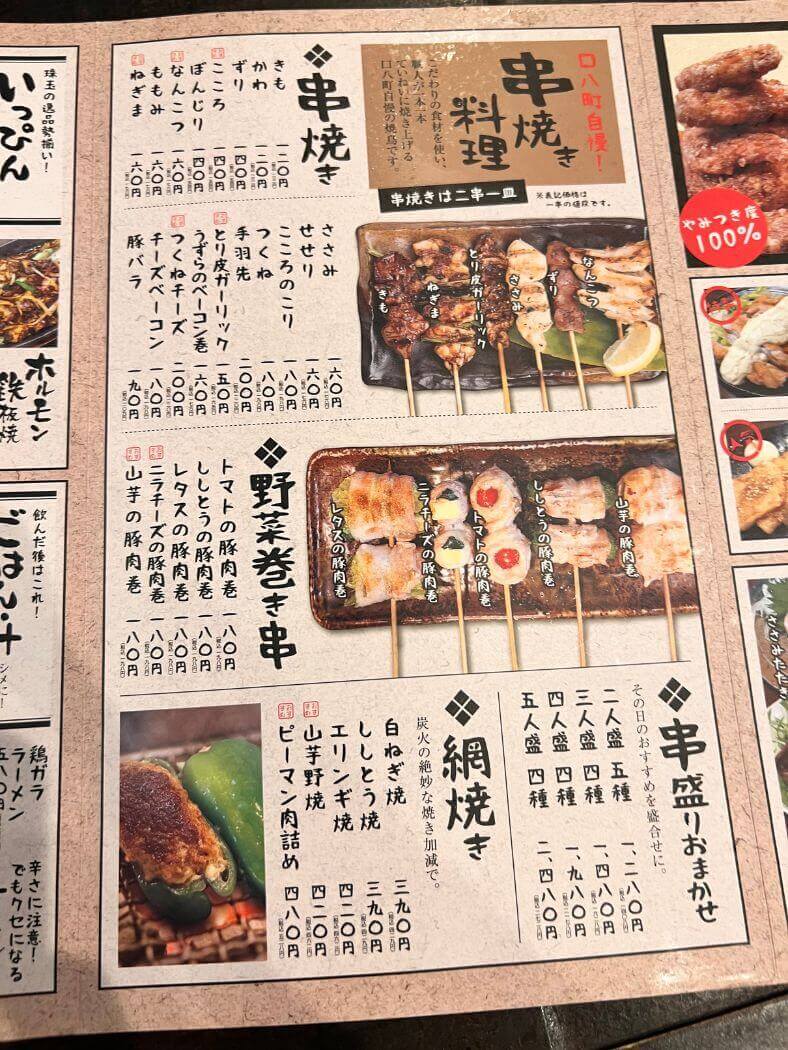 口八町自慢！
串焼き
料理
こだわりの食材を使い、
職人が一本一本
ていねいに焼き上げる
口八町自慢の焼鳥です。
串焼きは二串一皿
※表記価格は
一串の値段です。
串焼き
きも 一二〇円
かわ 一二〇円
ずり 一四〇円
こころ 一四〇円
ぼんじり 一四〇円
なんこつ 一六〇円
ももみ 一六〇円
ねぎま 一六〇円
ささみ 一六〇円
せせり 一六〇円
こころのこり 一八〇円
つくね 一八〇円
手羽先 二〇〇円
とり皮ガーリック 一五〇円
うずらのベーコン巻 一六〇円
つくねチーズ 二〇〇円
チーズベーコン 一八〇円
豚バラ 一九〇円
きも
ねぎま
とり皮ガーリック
ささみ
ずり
なんこつ
野菜巻き串
トマトの豚肉巻 一八〇円
ししとうの豚肉巻 一八〇円
レタスの豚肉巻 一八〇円
ニラチーズの豚肉巻 一八〇円
山芋の豚肉巻 一八〇円
レタスの豚肉巻
ニラチーズの豚肉巻
トマトの豚肉巻
ししとうの豚肉巻
山芋の豚肉巻
串盛りおまかせ
その日のおすすめを盛合せに。
二人盛 五種 一、二八〇円
三人盛 四種 一、四八〇円
四人盛 四種 一、九八〇円
五人盛 四種 二、四八〇円
網焼き
炭火の絶妙な焼き加減で。
白ねぎ焼 三九〇円
ししとう焼 三九〇円
エリンギ焼 四二〇円
山芋野焼 四二〇円
ピーマン肉詰め 四八〇円
珠玉の逸品勢揃い！
いっぴん
ホルモン
鉄板焼
飲んだ後はこれ！
ごはん・汁
シメに！
鶏ガラ
ラーメン
五八〇円
辛さに注意！
でもクセになる
やみつき度
100%
ささみたたき